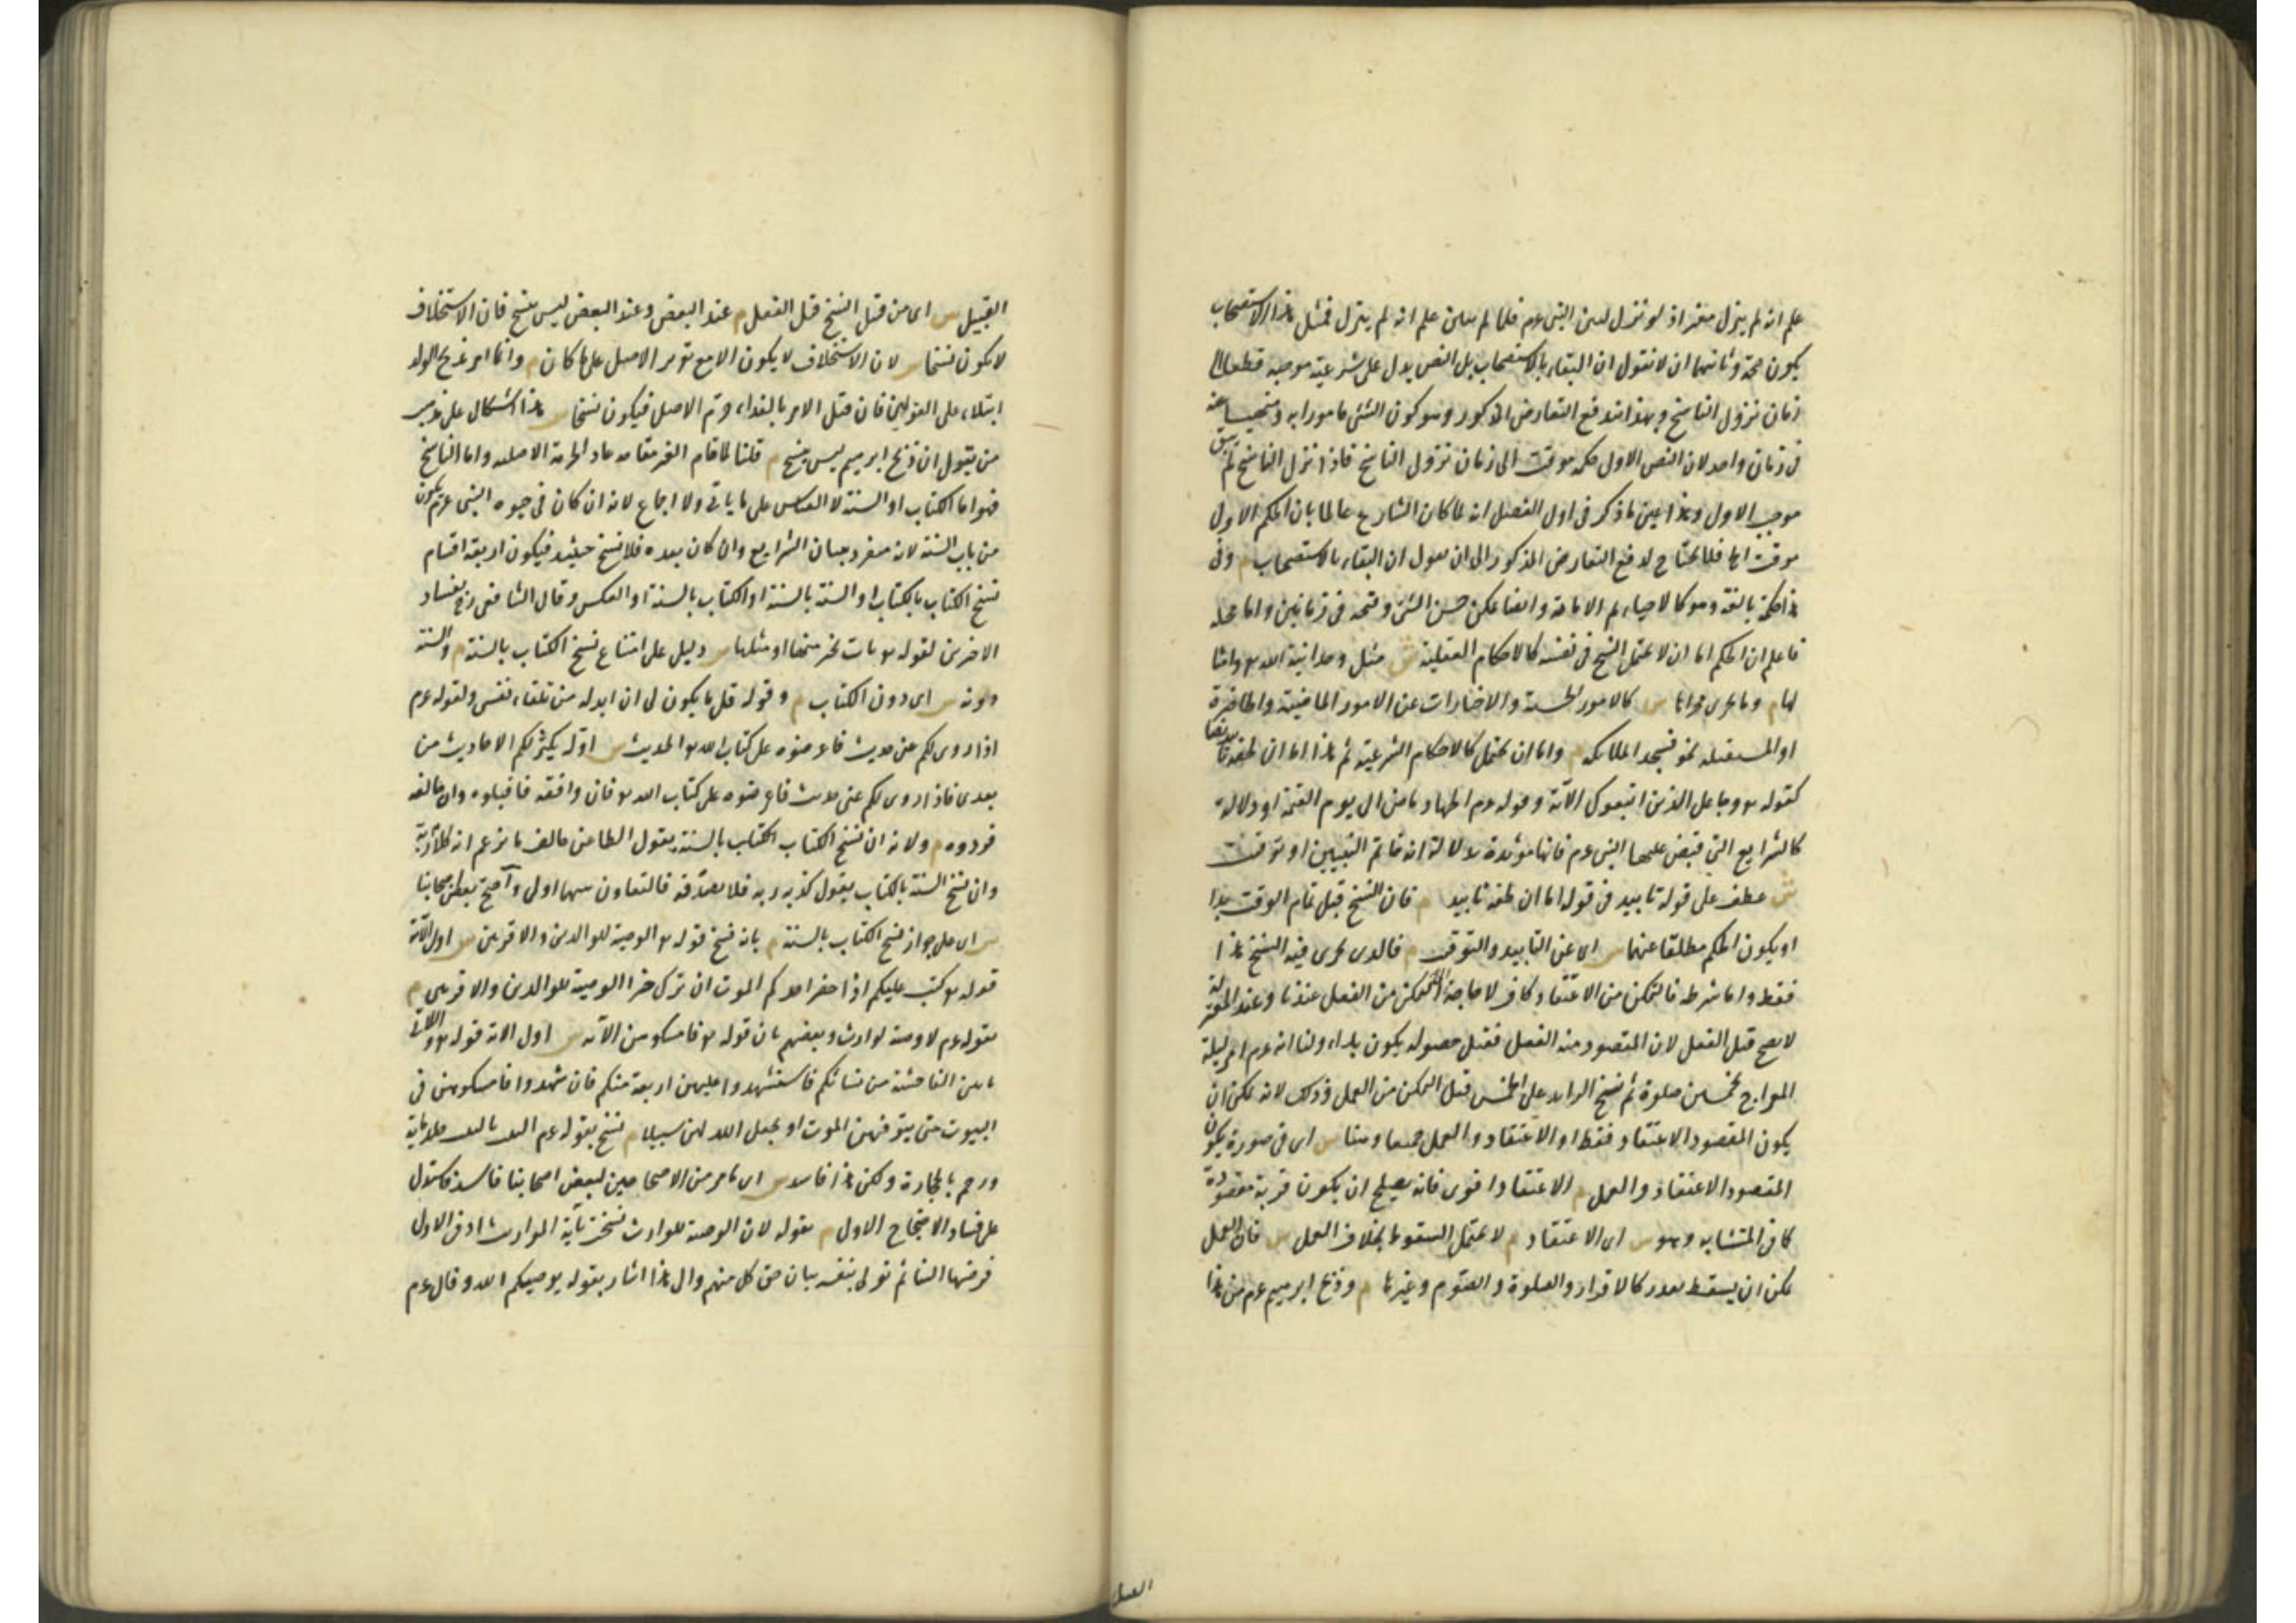 علم انه لم ينزل مغير اذ لو نزل لبين النبى عم فلما لم يبين علم انه لم ينزل فمثل هذا الاستصحاب
يكون حجة وثانيهما ان لا نقول ان البقاء بالاستصحاب بل النص يدل على شرعية موجبه قطعا الى
زمان نزول الناسخ وبهذا اندفع التعارض المذكور وهو كون الشئ مامورا به ومنهيا عنه
فى زمان واحد لان النص الاول حكمه موقت الى زمان نزول الناسخ فاذا نزل الناسخ لم يبق
موجب الاول وهذا عين ما ذكر فى اول الفصل انه لما كان الشارع عالما بان الحكم الاول
موقت الخ فلا يحتاج لدفع التعارض المذكور الى ان يقول ان البقاء بالاستصحاب م وفى
هذا حكمة بالغة وهو كالاحياء ثم الاماتة وايضا يمكن حسن الشئ وقبحه فى زمانين واما محله
فاعلم ان الحكم اما ان لا يحتمل النسخ فى نفسه كالاحكام العقلية ش مثل وحدانية الله تع وامثا
لها م وما يجرى مجراها س كالامور الحسية والاخبارات عن الامور الماضية والحاضرة
او المستقبلة نحو فسجد الملائكة م واما ان يحتمل كالاحكام الشرعية ثم هذا اما ان لحقه تابيد نصا
كقوله تع وجاعل الذين اتبعوك الآية وقوله عم الجهاد ماض الى يوم القيمة او دلالة
كالشرايع التى قبض عليها النبى عم فانها مؤبدة بدلالة انه خاتم النبيين او توقيت
ش عطف على قوله تابيد فى قوله اما ان لحقه تابيد م فان النسخ قبل تمام الوقت بدا
او يكون الحكم مطلقا عنهما س اى عن التابيد والتوقيت م فالذى يجرى فيه النسخ هذا
فقط واما شرطه فالتمكن من الاعتقاد كاف لا حاجة الى التمكن من الفعل عندنا وعند المعتزلة
لا يصح قبل الفعل لان المقصود منه الفعل فقبل حصوله يكون بداء ولنا انه عم امر ليلة
المعراج بخمسين صلوة ثم نسخ الزايد على الخمس قبل التمكن من العمل وذلك لانه يمكن ان
يكون المقصود الاعتقاد فقط او الاعتقاد والعمل جميعا وهنا س اى فى صورة يكون
المقصود الاعتقاد والعمل م الاعتقاد اقوى فانه يصلح ان يكون قربة مقصودة
كما فى المتشابه وهو س اى الاعتقاد م لا يحتمل السقوط بخلاف العمل س فان العمل
يمكن ان يسقط بعذر كالاقرار والصلوة والصوم وغيرها م وذبح ابرهيم عم من هذا
القبيل
القبيل س اى من قبيل النسخ قبل الفعل م عند البعض وعند البعض ليس بنسخ فان الاستخلاف
لا يكون نسخا س لان الاستخلاف لا يكون الا مع تقرير الاصل على ما كان م وانما امر بذبح الولد
ابتلاء على القولين فان قيل الامر بالفداء حرم الاصل فيكون نسخا س هذا اشكال على مذهب
من يقول ان ذبح ابرهيم ليس بنسخ م قلنا لما قام الغير مقامه عاد الحرمة الاصلية واما الناسخ
فهو اما الكتاب او السنة لا القياس على ما ياتى ولا اجماع لانه ان كان فى حيوة النبى عم يكون
من باب السنة لانه متفرد ببيان الشرايع وان كان بعده فلا نسخ حينئذ فيكون اربعة اقسام
نسخ الكتاب بالكتاب او السنة بالسنة او الكتاب بالسنة او العكس وقال الشافعى رح بفساد
الاخيرين لقوله تع نات بخير منها او مثلها س دليل على امتناع نسخ الكتاب بالسنة م والسنة
دونه س اى دون الكتاب م وقوله قل ما يكون لى ان ابدله من تلقاء نفسى ولقوله عم
اذا روى لكم عنى حديث فاعرضوه على كتاب الله تع الحديث س اوله يكثر لكم الاحاديث من
بعدى فاذا روى لكم عنى حديث فاعرضوه على كتاب الله تع فان وافقه فاقبلوه وان خالفه
فردوه م ولانه ان نسخ الكتاب الكتاب بالسنة يقول الطاعن خالف ما يزعم انه كلام ربه
وان نسخ السنة بالكتاب يقول كذبه ربه فلا نصدقه فالتعاون بينهما اولى واحتج بعض اصحابنا
س اى على جواز نسخ الكتاب بالسنة م بانه نسخ قوله تع الوصية للوالدين والاقربين س اول الآية
قوله تع كتب عليكم اذا حضر احدكم الموت ان ترك خيرا الوصية للوالدين والاقربين م
بقوله عم لا وصية لوارث وبعضهم بان قوله تع فامسكوهن الآية س اول الاية قوله تع واللاتى
ياتين الفاحشة من نسائكم فاستشهدوا عليهن اربعة منكم فان شهدوا فامسكوهن فى
البيوت حتى يتوفيهن الموت او يجعل الله لهن سبيلا م نسخ بقوله عم الثيب بالثيب جلد مائة
ورجم بالحجارة ولكن هذا فاسد س اى ما مر من الاحتجاجين لبعض اصحابنا فاسد فاستدل
على فساد الاحتجاج الاول م بقوله لان الوصية للوارث نسخت بآية المواريث اذ فى الاول
فوضها الينا ثم تولى بنفسه بيان حق كل منهم والى هذا اشار بقوله يوصيكم الله وقال عم